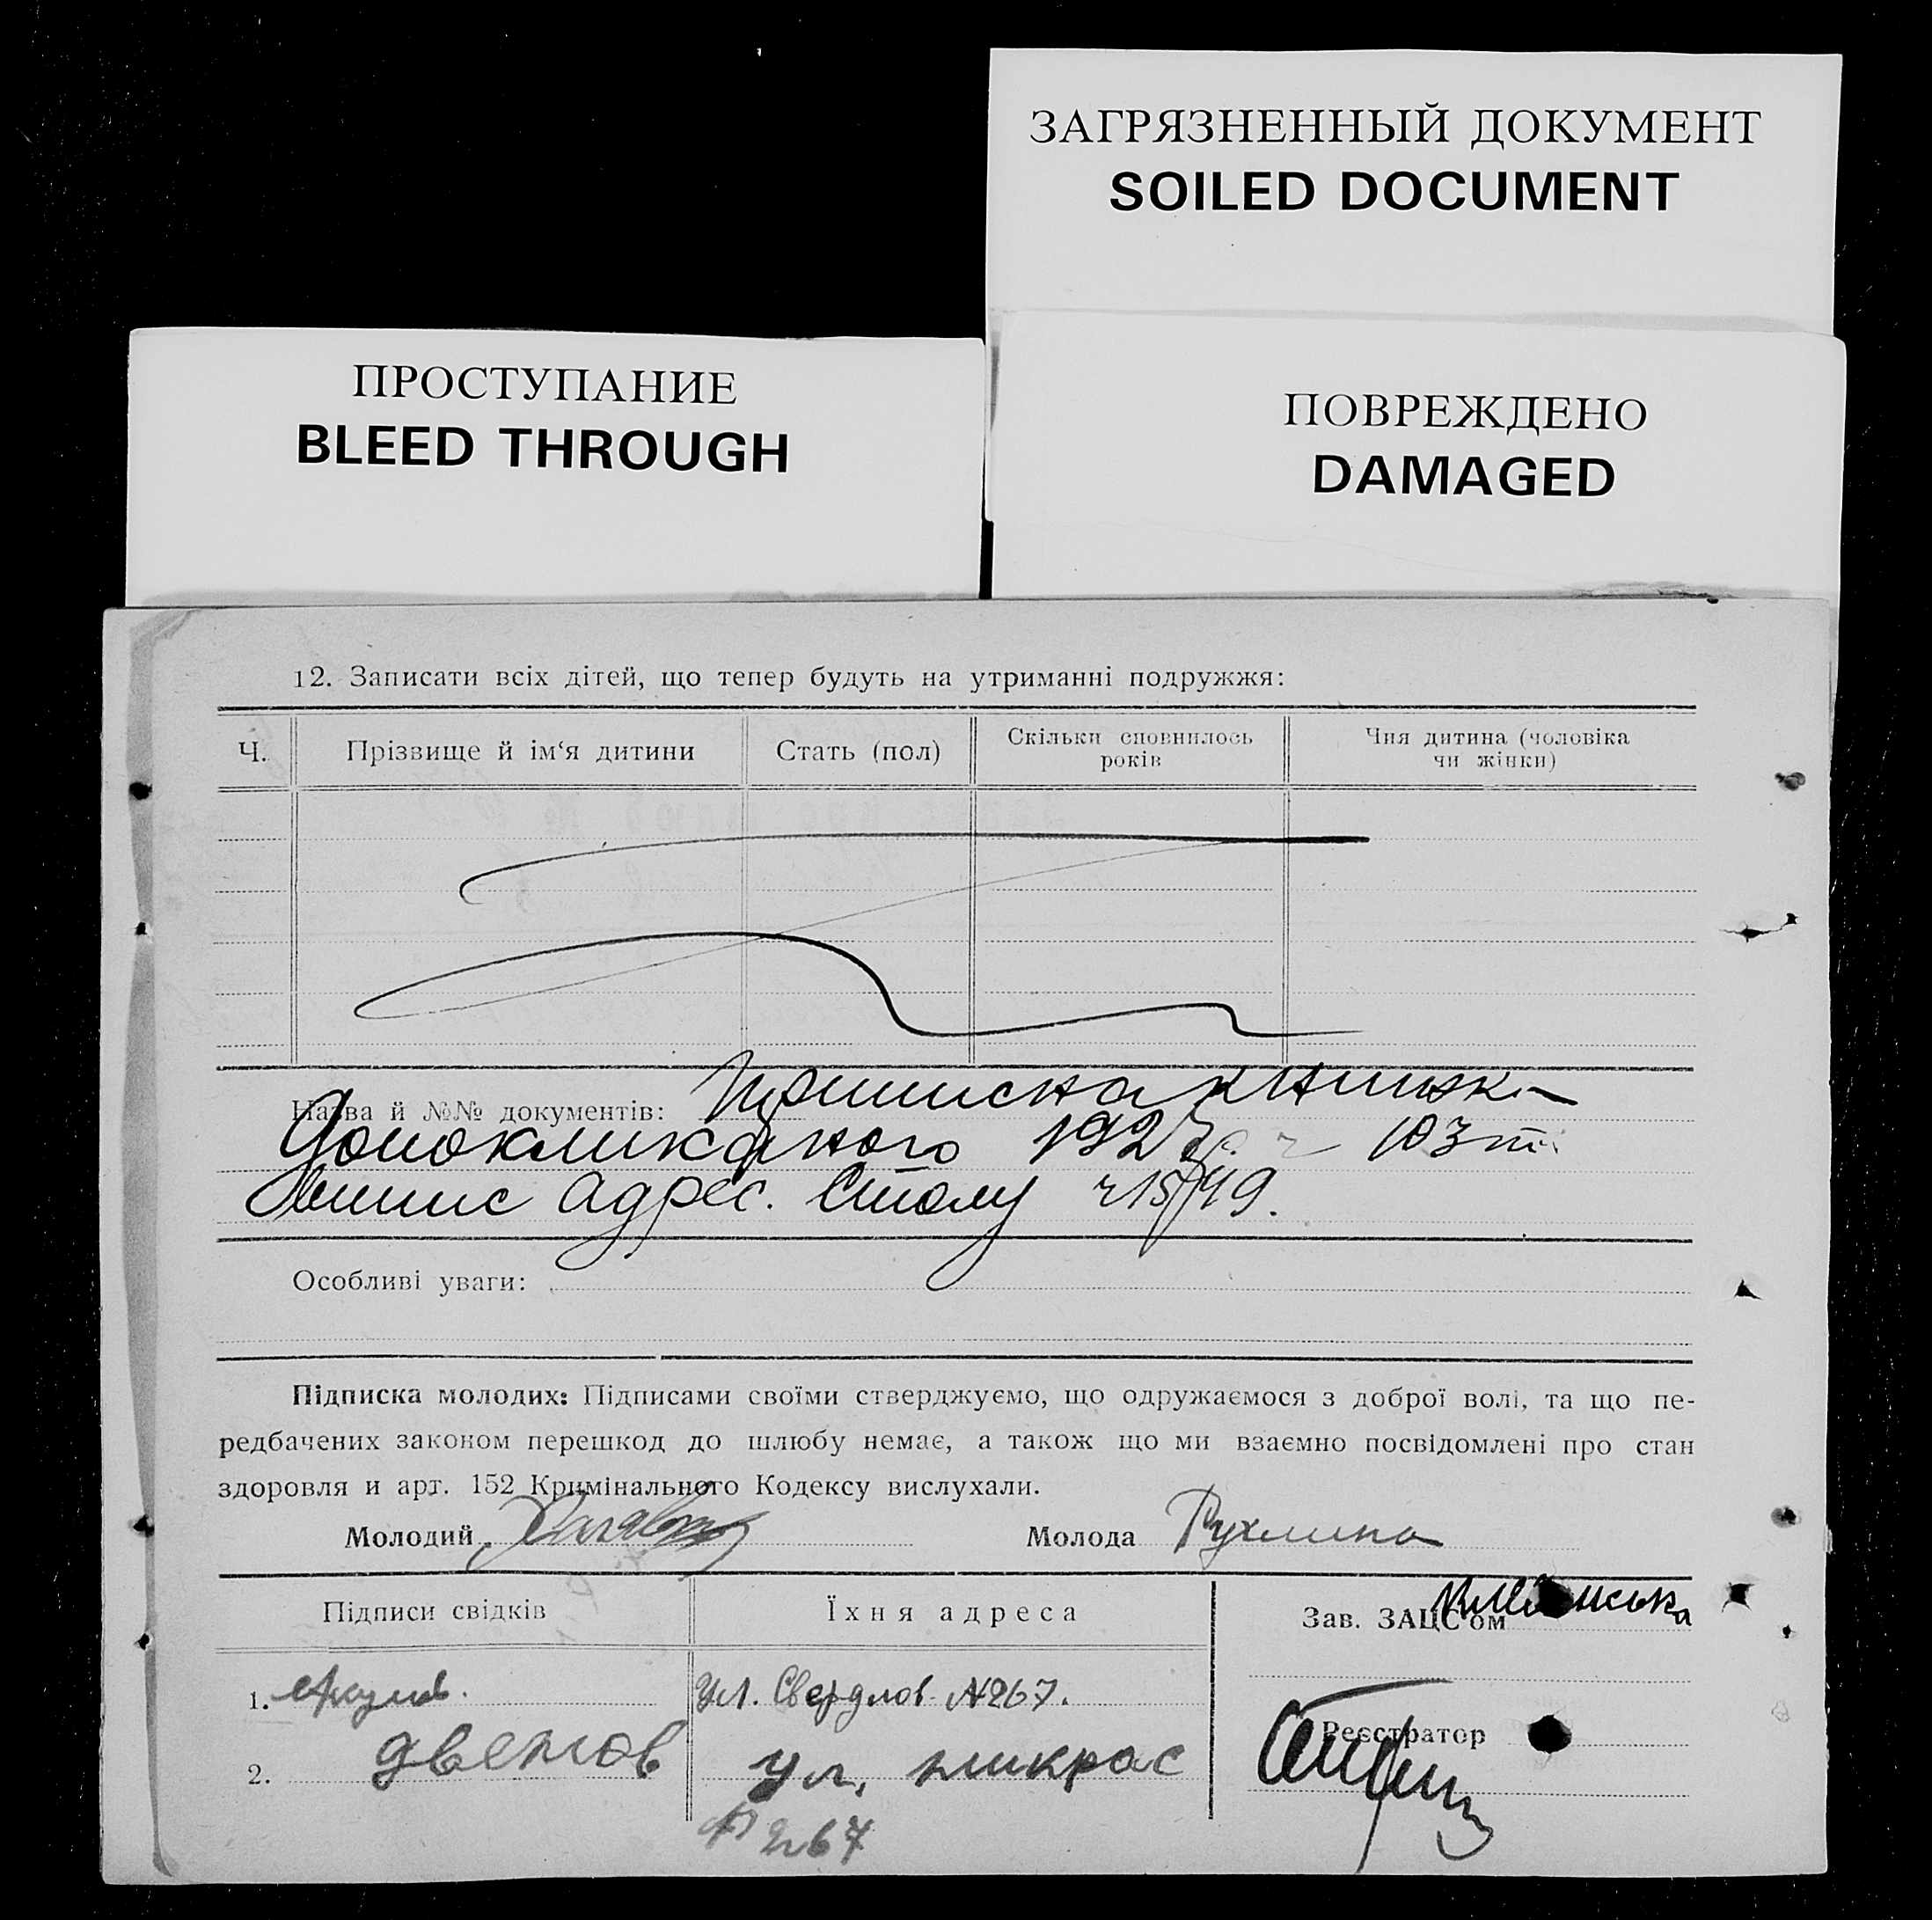 ЗАГРЯЗНЕННЫЙ ДОКУМЕНТ
SOILED DOCUMENT
ПРОСТУПАНИЕ
BLEED THROUGH
ПОВРЕЖДЕНО
DAMAGED
12. Записати всіх дітей, що тепер будуть на утриманні подружжя:
Ч. Прізвище й ім‘я дитини Стать (пол) Скільки сповнилось років Чия дитина (чоловіка чи жінки)
Назва й №№ документів:
Допокликаного 192 103
адрес. Столу ч 15/749.
Особливі уваги:
Підписка молодих: Підписами своїми стверджуємо, що одружаємося з доброї волі, та що пе-
редбачених законом перешкод до шлюбу немає, а також що ми взаємно посвідомлені про стан
здоровля и арт. 152 Кримінального Кодексу вислухали.
Молодий Молода Рухлина
Підписи свідків Їхня адреса Зав. ЗАЦС'ом
1. Ул. Свердлов №267.
Реєстратор
2. ул.
№ 267